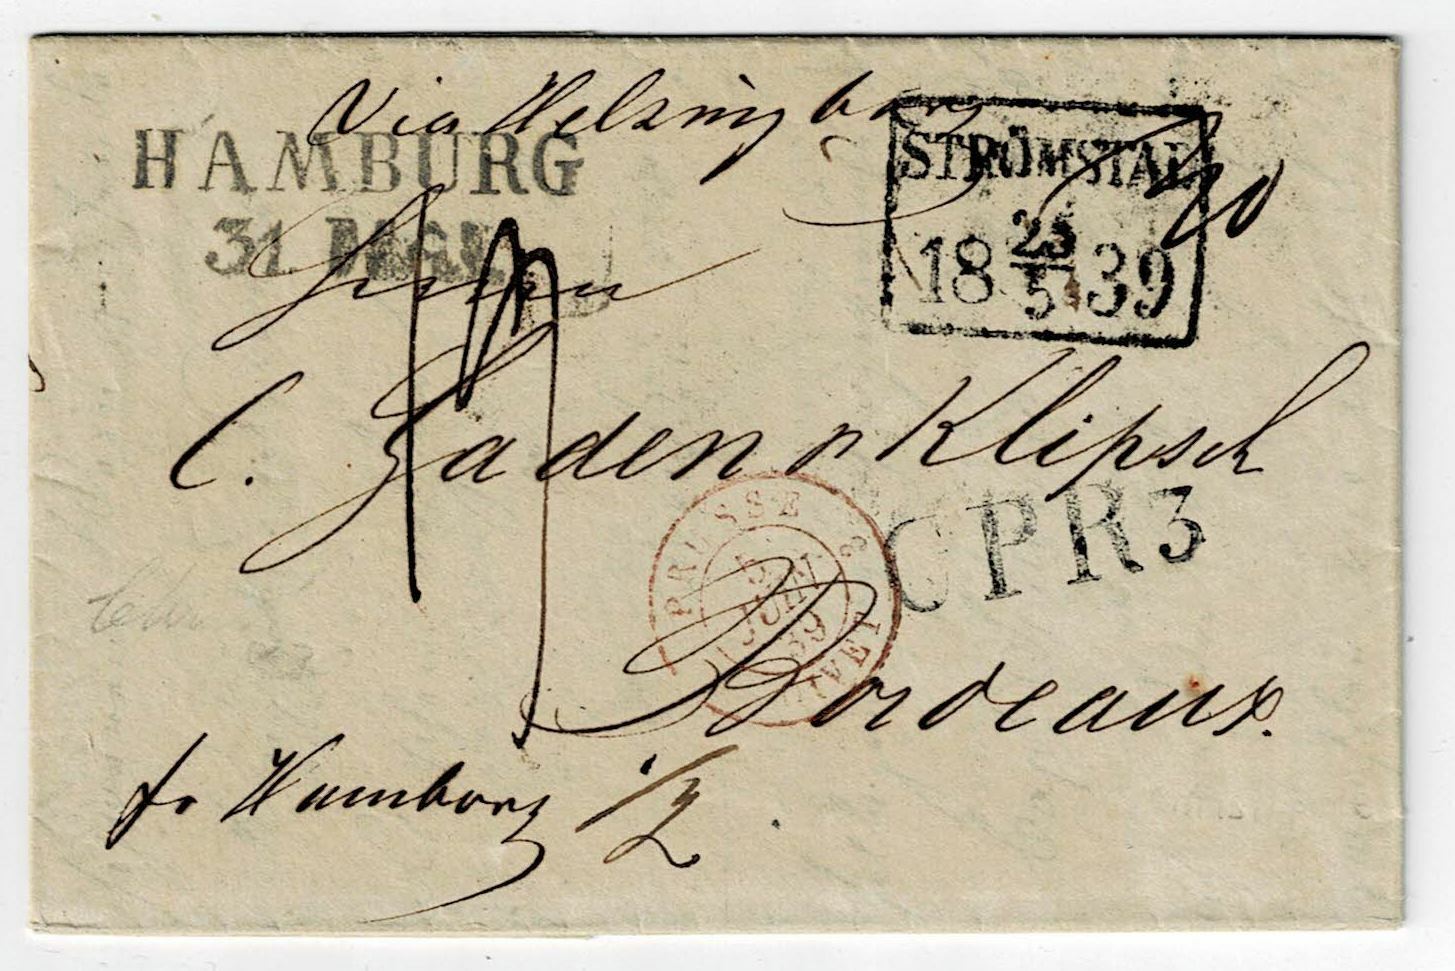 Via Helsingborg
HAMBURG
31 MAI
STRÖMSTAD
18 25/5 39
Herrn
C. Gaden & Klipsch
CPR3
PRUSSE 3
5
JUIN
39
GIVET
Bordeaux.
fr Hamborg 1/2